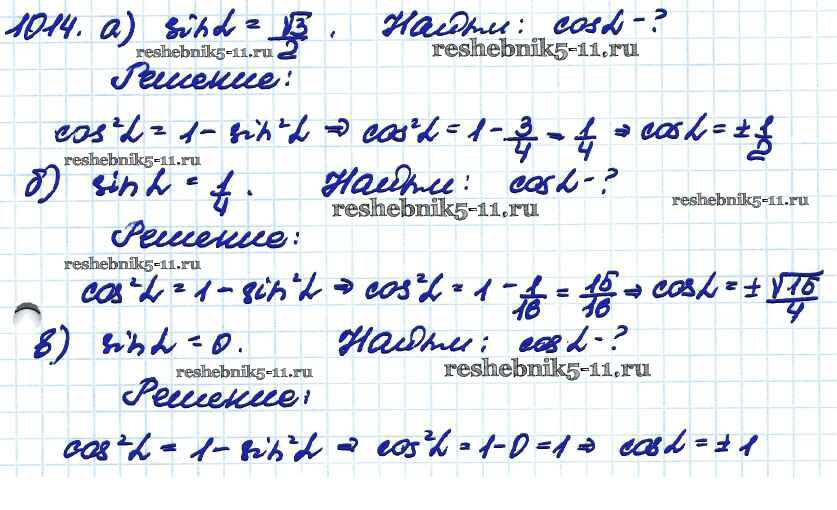 1014. а) sin α = √3/2. Найти: cos α - ?
reshebnik5-11.ru reshebnik5-11.ru
Решение:
cos²α = 1 - sin²α ⇒ cos²α = 1 - 3/4 = 1/4 ⇒ cos α = ± 1/2
reshebnik5-11.ru
б) sin α = 1/4. Найти: cos α - ?
reshebnik5-11.ru reshebnik5-11.ru
Решение:
reshebnik5-11.ru
cos²α = 1 - sin²α ⇒ cos²α = 1 - 1/16 = 15/16 ⇒ cos α = ± √15/4
в) sin α = 0. Найти: cos α - ?
reshebnik5-11.ru reshebnik5-11.ru
Решение:
cos²α = 1 - sin²α ⇒ cos²α = 1 - 0 = 1 ⇒ cos α = ± 1